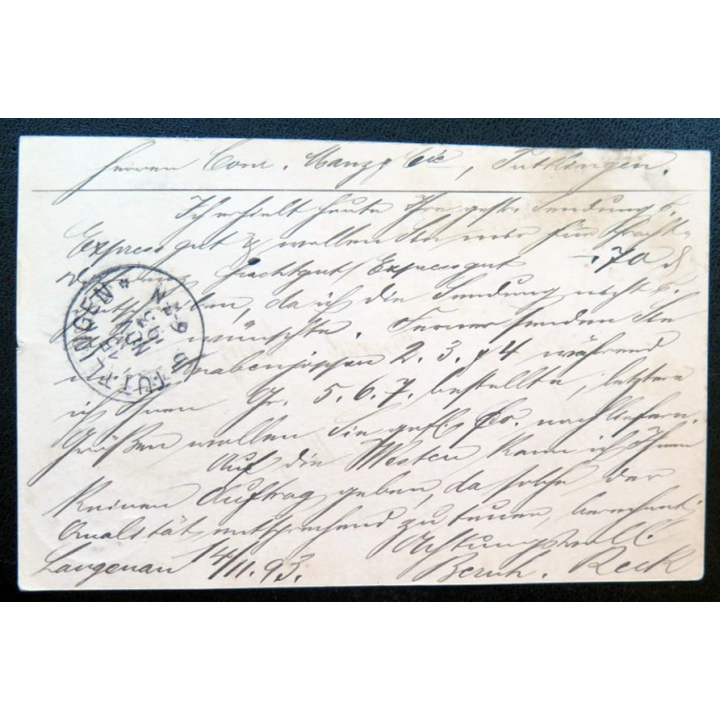 Herren Conr. Manz & Cie, Tuttlingen.
Ich erhielt heute Ihre gefl. Sendung p.
Expressgut & wollen Sie mir für Fracht-
Frachtgut/Expressgut -.70 d
da ich die Sendung nicht p.
wünschte. Ferner senden Sie
Knabenjoppen 2. 3. & 4 während
ich Ihnen Gr. 5. 6. 7. bestellte, letztere
Größen wollen Sie gefl. fro. nachliefern.
Auf die Westen kann ich Ihnen
keinen Auftrag geben, da solche der
Qualität entsprechend zu teuer berechnet.
Achtungsvoll.
Langenau 14/11.93. Bernh. Reck
TUTTLINGEN
15
NOV
93